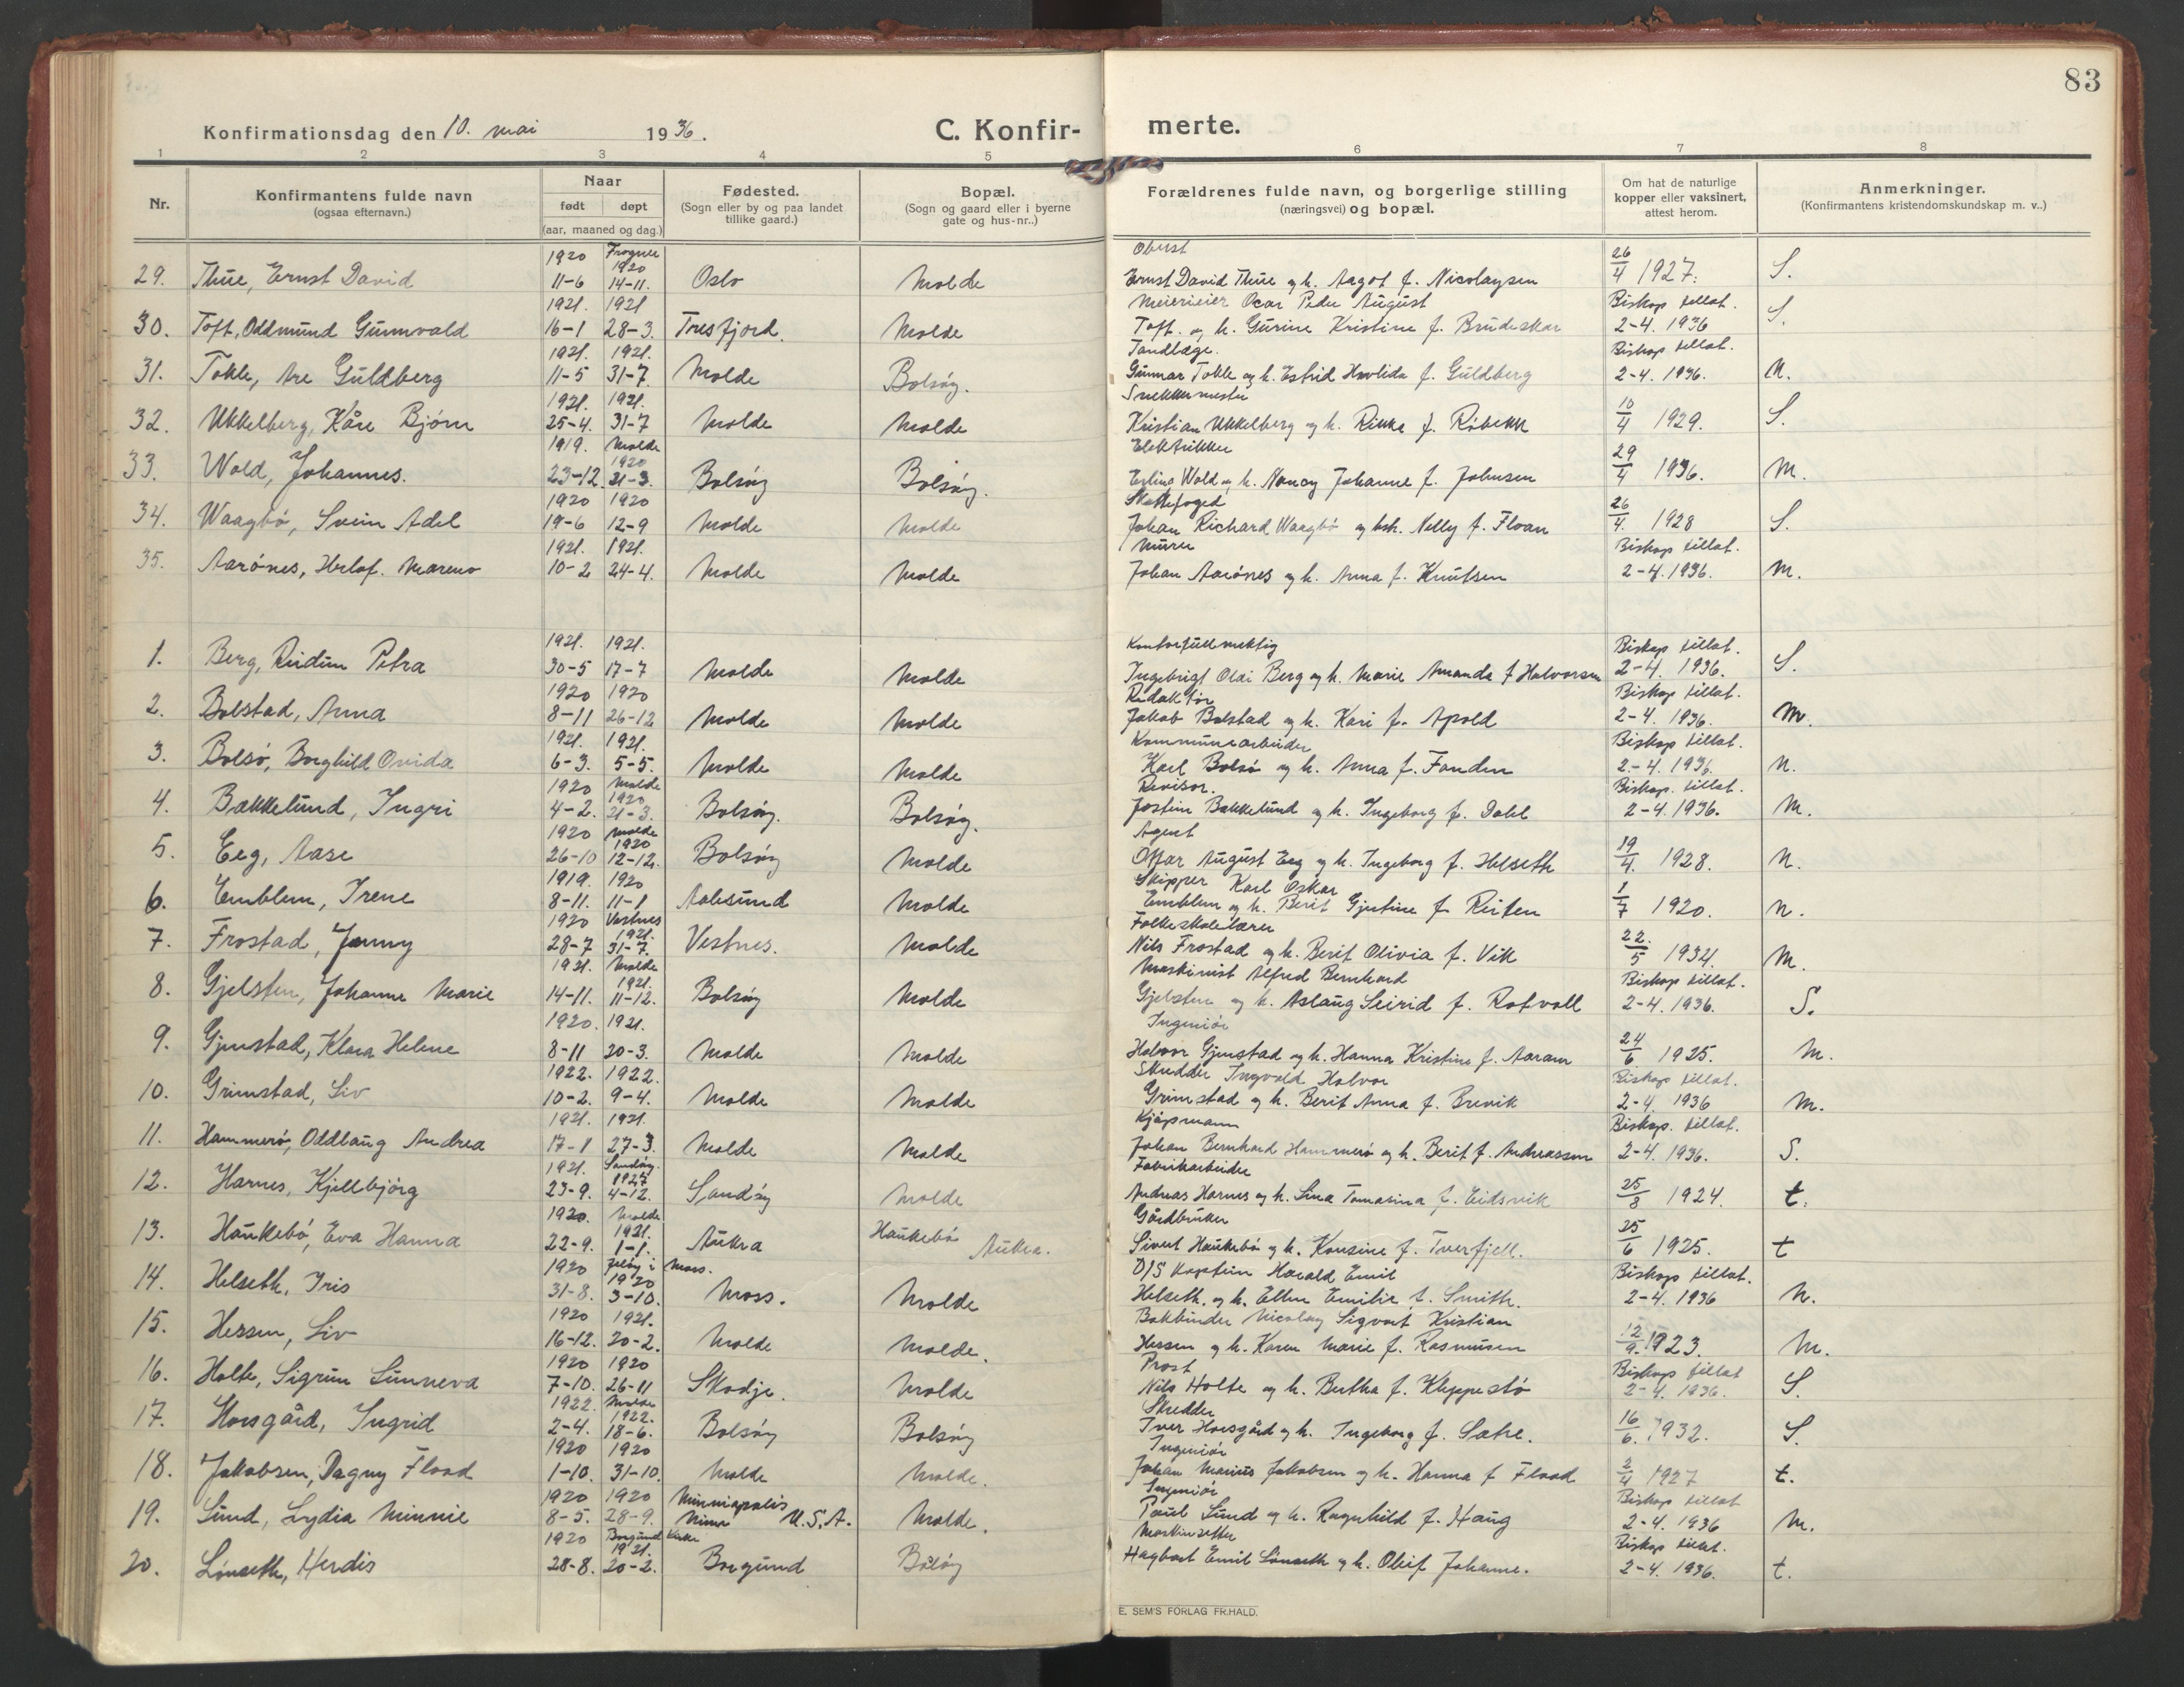 83
Konfirmationsdag den 10. mai 1936.
C. Konfir-
merte.
1 2 3 4 5 6 7 8
Nr.
Konfirmantens fulde navn
(ogsaa efternavn.)
Naar
født døpt
(aar, maaned og dag.)
Fødested.
(Sogn eller by og paa landet
tillike gaard.)
Bopæl.
(Sogn og gaard eller i byerne
gate og hus-nr..)
Forældrenes fulde navn, og borgerlige stilling
(næringsvei) og bopæl.
Om hat de naturlige
kopper eller vaksinert,
attest herom.
Anmerkninger.
(Konfirmantens kristendomskundskap m. v..)
1920 Frogner 1920 Oberst
29. Thue, Ernst David 11-6 14-11. Oslo Molde Ernst David Thue og h. Aagot f. Nicolaysen 26/4 1927. S.
1921. 1921 Meierieier Oscar Peder August Biskop tillat.
30. Toft, Oddmund Gunnvald 16-1 28-3. Tresfjord. Molde Toft. og h. Gurine Kristine f. Brudeskar 2-4. 1936 S.
1921. 1921. Tandlæge. Biskop tillat.
31. Tokle, Are Guldberg 11-5 31-7. Molde Bolsøy. Gunnar Tokle og h. Estrid f. Guldberg 2-4. 1936. N.
1921. 1921. Snekkermester
32. Ukkelberg, Kåre Bjørn 25-4. 31-7 Molde Molde Kristian Ukkelberg og h. Rikka f. Røbekk 10/4 1929. S.
1919. Molde 1920 Elektriker
33. Wold, Johannes. 23-12. 21-3. Bolsøy Bolsøy. Erling Wold og h. Nancy Johanne f. Johnsen 29/4 1936. M.
1920 1920 Skattefoged
34. Waagbø, Svein Adel 19-6 12-9 Molde Molde Johan Richard Waagbø og hsh. Nelly f. Floan 26/4. 1928 S.
1921. 1921. Murer Biskop tillat.
35. Aarønes, Herlof. Mareno 10-2 24-4. Molde Molde Johan Aarønes og h. Anna f. Knutsen 2-4. 1936. M.
1921. 1921. Kontorfullmektig Biskop tillat.
1. Berg, Reidun Petra 30-5 17-7 Molde Molde Ingebrigt Oldi Berg og h. Marie Amanda f Halvorsen 2-4. 1936. S.
1920 1920 Redaktør Biskop tillat.
2. Bolstad, Anna 8-11 26-12 Molde Molde Jakob Bolstad og h. Kari f. Apold 2-4. 1936. M.
1921. 1921. Kommunearbeider Biskop tillat.
3. Bolsø, Borghild Ovida 6-3. 5-5. Molde Molde Karl Bolsø og h. Anna f. Fanden 2-4. 1936. N.
1920 Molde 1920 Revisor. Biskop. tillat.
4. Bakkelund, Ingri 4-2. 21-3. Bolsøy. Bolsøy. Jostein Bakkelund og h. Ingeborg f. Dahl 2-4. 1936. M.
1920 Molde 1920 Agent
5. Eeg, Aase 26-10 12-12. Bolsøy Molde Ottar August Eeg og h. Ingeborg f. Helseth 19/4. 1928. N.
1919. 1920 Skipper Karl Oskar
6. Emblem, Irene 8-11. 11-1 Aalesund Molde Emblem og h. Berit Gjertine f. Reiten 1/7 1920. N.
1920 Vestnes 1921. Folkeskolelærer
7. Frostad, Jenny 28-7 31-7. Vestnes. Molde Nils Frostad og h. Berit Olivia f. Vik 22./5 1934. M.
1921. Molde 1921. Maskinist Alfred Bernhard Biskop tillat.
8. Gjelsten, Johanne Marie 14-11. 11-12. Bolsøy Molde Gjelsten og h. Aslaug Seirid f. Rotvoll 2-4. 1936. S.
1920. 1921. Ingeniør
9. Gjenstad, Klara Helene 8-11 20-3. Molde Molde Halvor Gjenstad og h. Hanna Kristine f. Aaram 24/6 1925. M.
1922. 1922. Skredder Ingvald Halvor Biskop tillat.
10. Grimstad, Liv 10-2. 9-4. Molde Molde Grimstad og h. Berit Anna f. Brevik 2-4. 1936 M.
1921. 1921. Kjøpmann Biskop. tillat.
11. Hammerø, Oddlaug Andrea 17-1 27-3. Molde Molde Johan Bernhard Hammerø og h. Berit f. Andreassen 2-4. 1936. S.
1921. Sandøy. 1927 Fabrikarbeider
12. Harnes, Kjellbjørg 23-9. 4-12. Sandøy Molde Andreas Harnes og h. Lina Tomasina f. Eidsvik 25/8 1924. t.
1920. Molde 1921. Gårdbruker
13. Haukebø, Eva Hanna 22-9. 1-1. Aukra Haukebø Aukra. Sivert Haukebø og h. Konsine f. Tverfjell. 25/6 1925. t
1920 Jeløy i Moss. 1920 D/S kaptein Harald Emil Biskop tillat.
14. Helseth, Iris 31-8. 3-10. Moss. Molde Helseth. og h. Ellen Emilie f. Smith. 2-4. 1936 N.
1920 1921. Bokbinder Nicolay Sigvart Kristian
15. Hessen, Liv 16-12. 20-2. Molde Molde. Hessen og h. Karen Marie f. Rasmusen 12/9. 1923. M.
1920 1920 Prost Biskop tillat
16. Holte, Sigrun Sunneva 7-10. 26-11 Skodje. Molde Nils Holte og h. Bertha f. Kleppestø 2-4. 1936. S.
1922. Molde 1922. Skredder
17. Horsgård, Ingrid 2-4. 18-6. Bolsøy Bolsøy Iver Horsgård og h. Ingeborg f. Sætre. 16/6. 1932. S.
1920 1920 Ingeniør
18. Jakobsen, Dagny Flood 1-10. 31-10. Molde Molde. Johan Marius Jakobsen og h. Hanna f Flood 2/4 1927 t.
1920 1920 Minniapolis Ingeniør Biskop tillat
19. Lund, Lydia Minnie 8-5. 28-9. Minn U.S.A. Molde. Paul Lund og h. Ragnhild f. Haug 2-4. 1936 M.
1920 Borgund Kirke 1921. Maskinsetter Biskop tillat.
20. Lønseth, Herdis 28-8. 20-2. Borgund Bolsøy Hagbart Emil Lønseth og h. Johanne. 2-4. 1936. t.
E. SEM'S FORLAG FR.HALD.